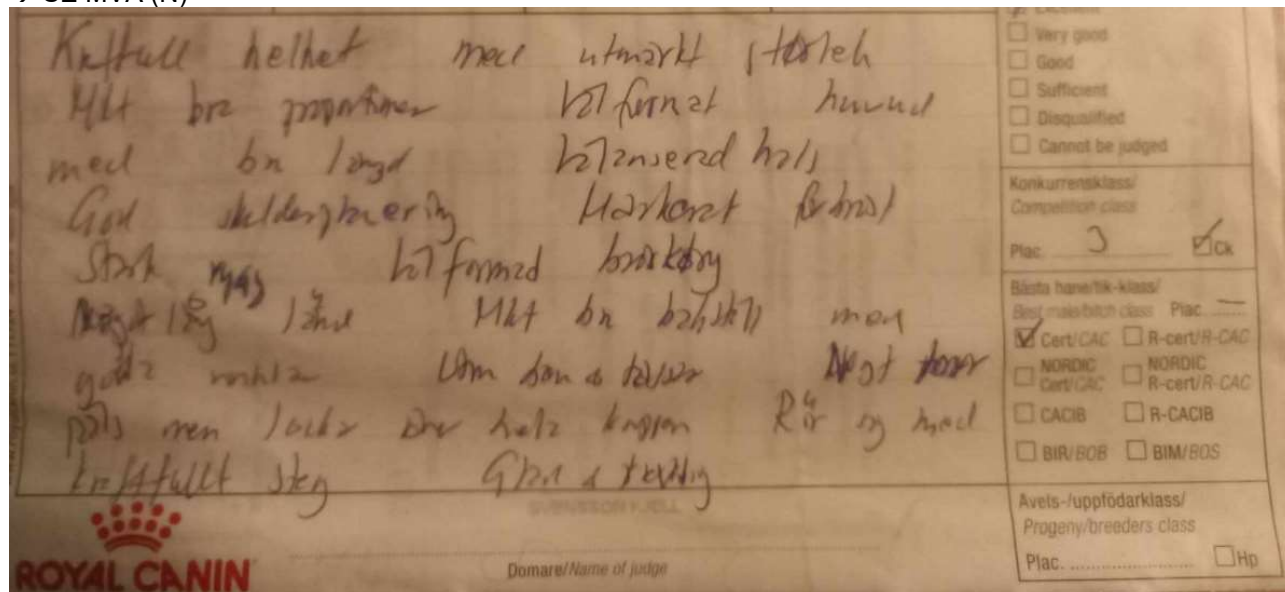 Kraftfull helhet med utmärkt storlek
Mkt bra proportioner Välformat huvud
med bra längd balanserad hals
God skuldervinkling Markerat förbröst
Stark rygg välformad bröstkorg
Något lång länd Mkt bra bakställ med
goda vinklar
päls men lockar över hela kroppen Rör sig med
kraftfullt steg Glad & trevlig
Excellent
Very good
Good
Sufficient
Disqualified
Cannot be judged
Konkurrensklass/
Competition class
Plac. 3 Ck
Bästa hane/tik-klass/
Best male/bitch class Plac.
Cert/CAC R-cert/R-CAC
NORDIC Cert/CAC NORDIC R-cert/R-CAC
CACIB R-CACIB
BIR/BOB BIM/BOS
Avels-/uppfödarklass/
Progeny/breeders class
Plac. Hp
SVENSSON KJELL
Domare/Name of judge
ROYAL CANIN